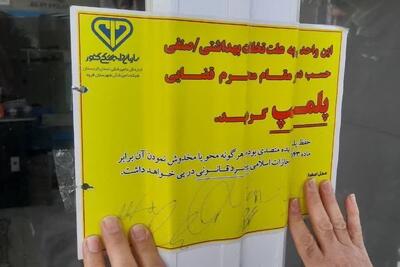 این واحد به علت تخلفات بهداشتی/صنفی
حسب دستور مقام محترم قضایی
پلمپ گردید.
سازمان دامپزشکی کشور
حفظ پلمپ به عهده متصدی بوده هرگونه محو یا مخدوش نمودن آن برابر
ماده ۵۴۳ مجازات اسلامی پیگرد قانونی در پی خواهد داشت.
محل امضا